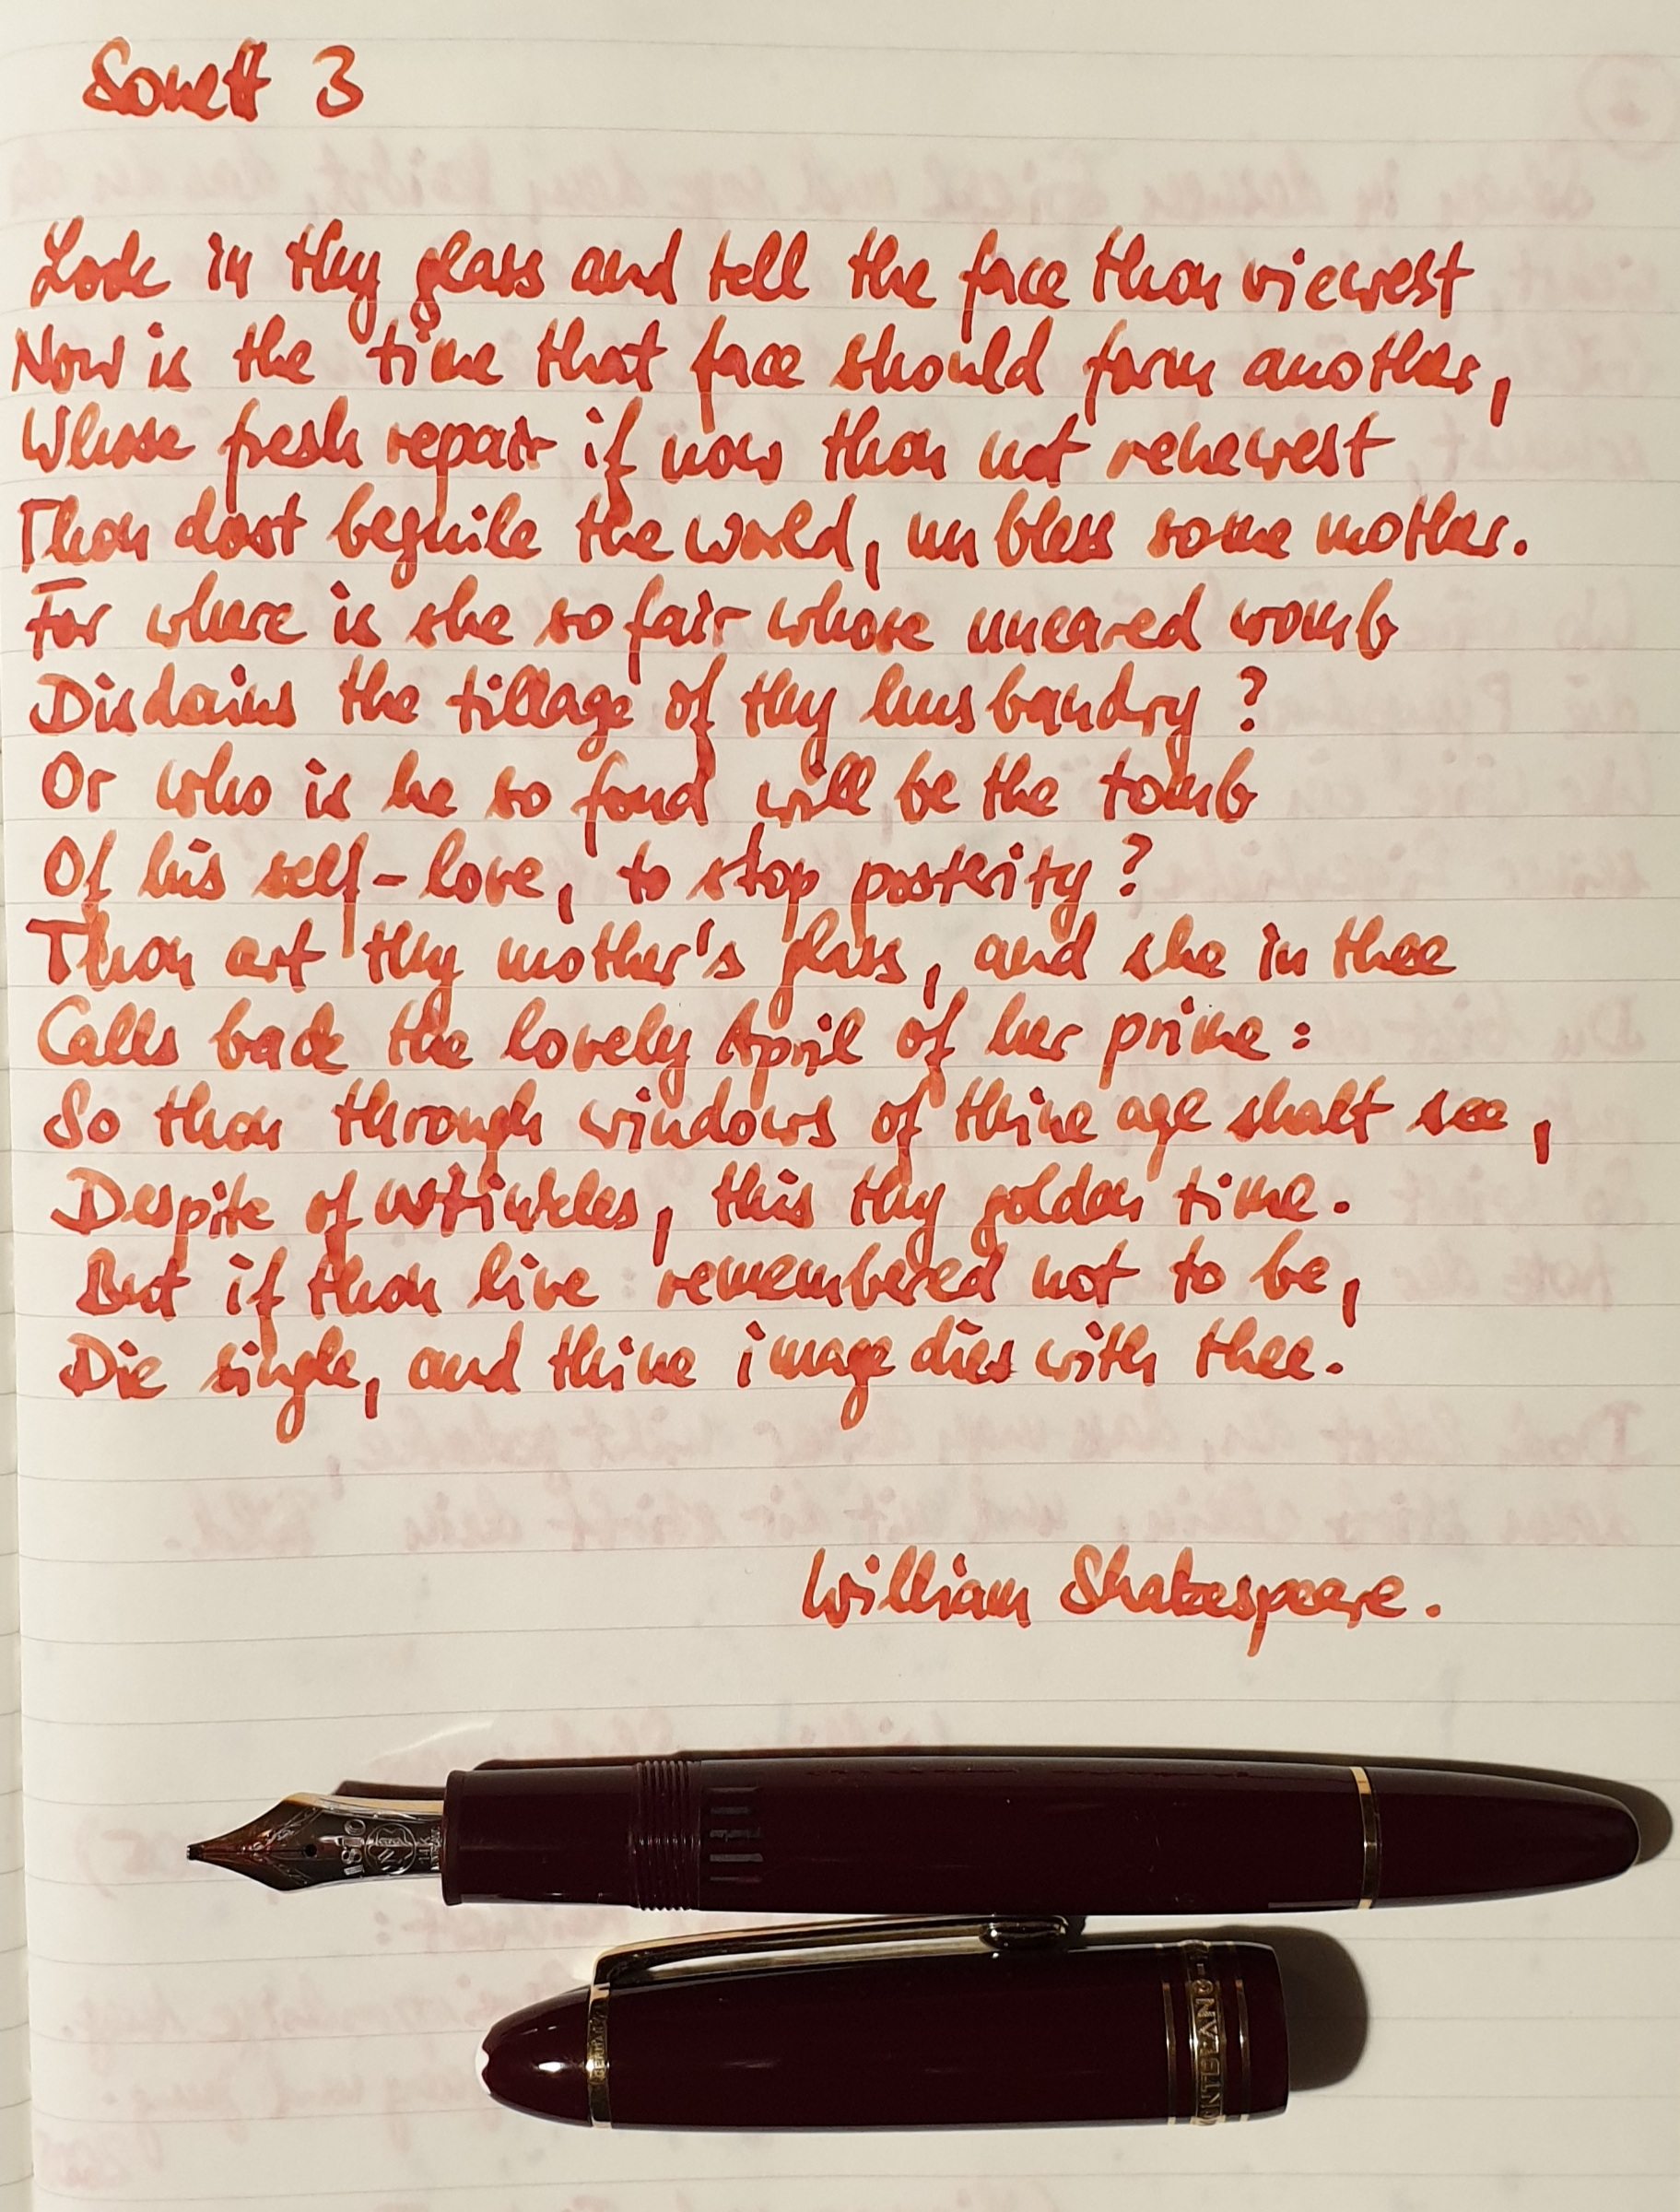 Sonett 3
Look in thy glass and tell the face thou viewest
Now is the time that face should form another,
Whose fresh repair if now thou not renewest
Thou dost beguile the world, unbless some mother.
For where is she so fair whose uneared womb
Disdains the tillage of thy husbandry?
Or who is he so fond will be the tomb
Of his self-love, to stop posterity?
Thou art thy mother's glass, and she in thee
Calls back the lovely April of her prime:
So thou through windows of thine age shalt see,
Despite of wrinkles, this thy golden time.
But if thou live remembered not to be,
Die single, and thine image dies with thee.
William Shakespeare.
4810
14K